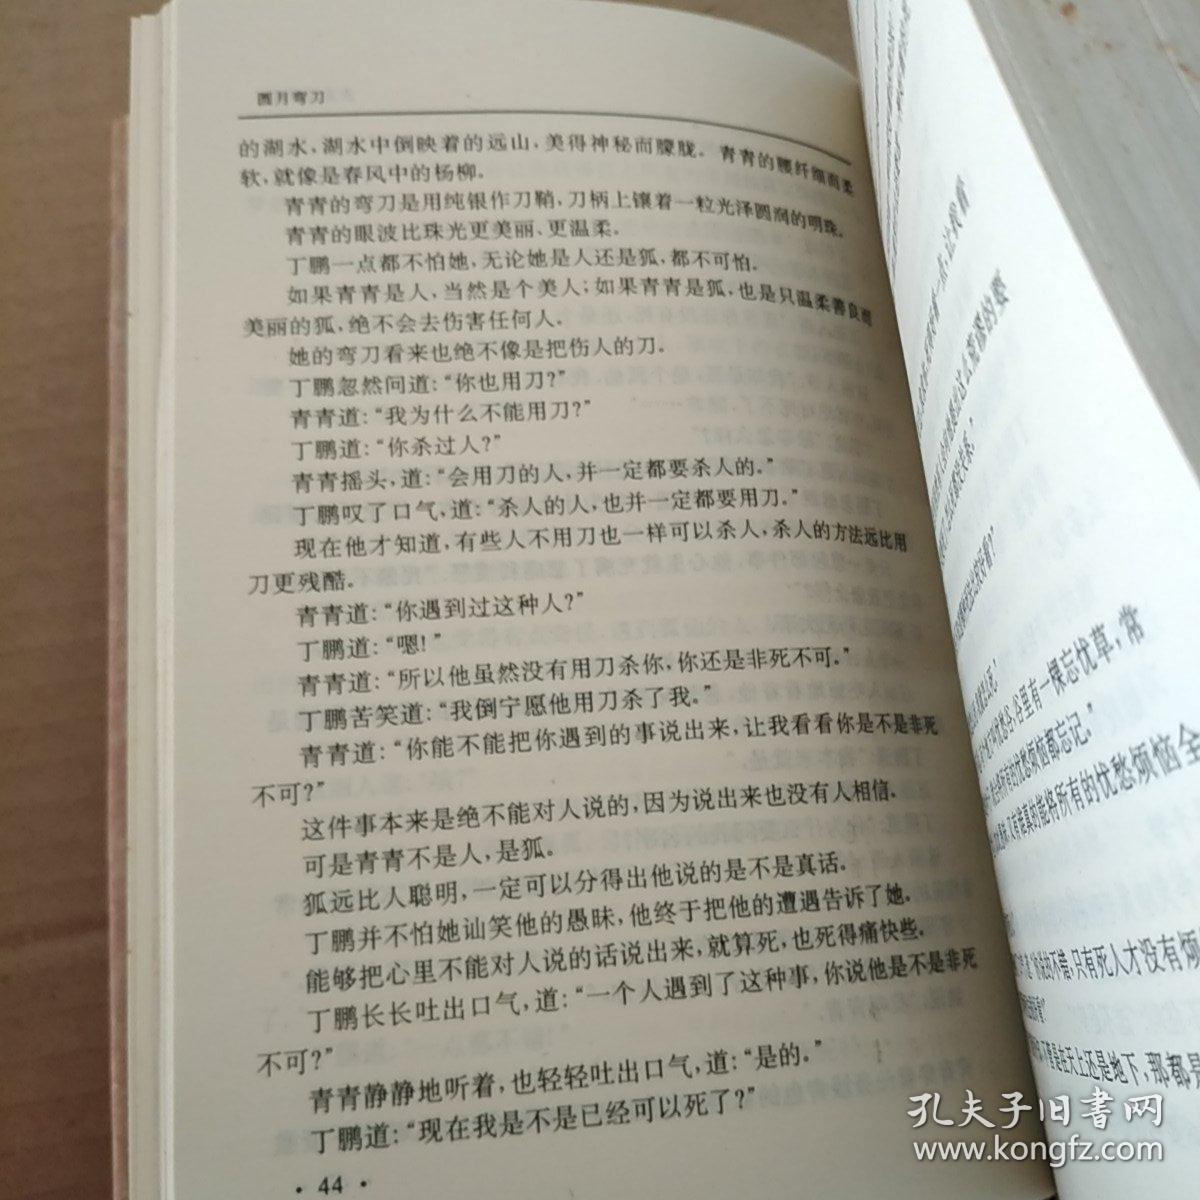 圆月弯刀
的湖水，湖水中倒映着的远山，美得神秘而朦胧。青青的腰纤细而柔
软，就像是春风中的杨柳。
青青的弯刀是用纯银作刀鞘，刀柄上镶着一粒光泽圆润的明珠。
青青的眼波比珠光更美丽、更温柔。
丁鹏一点都不怕她，无论她是人还是狐，都不可怕。
如果青青是人，当然是个美人；如果青青是狐，也是只温柔善良而
美丽的狐，绝不会去伤害任何人。
她的弯刀看来也绝不像是把伤人的刀。
丁鹏忽然问道：“你也用刀？”
青青道：“我为什么不能用刀？”
丁鹏道：“你杀过人？”
青青摇头，道：“会用刀的人，并一定都要杀人的。”
丁鹏叹了口气，道：“杀人的人，也并一定都要用刀。”
现在他才知道，有些人不用刀也一样可以杀人，杀人的方法远比用
刀更残酷。
青青道：“你遇到过这种人？”
丁鹏道：“嗯！”
青青道：“所以他虽然没有用刀杀你，你还是非死不可。”
丁鹏苦笑道：“我倒宁愿他用刀杀了我。”
青青道：“你能不能把你遇到的事说出来，让我看看你是不是非死
不可？”
这件事本来是绝不能对人说的，因为说出来也没有人相信。
可是青青不是人，是狐。
狐远比人聪明，一定可以分得出他说的是不是真话。
丁鹏并不怕她讪笑他的愚昧，他终于把他的遭遇告诉了她。
能够把心里不能对人说的话说出来，就算死，也死得痛快些。
丁鹏长长吐出口气，道：“一个人遇到了这种事，你说他是不是非死
不可？”
青青静静地听着，也轻轻吐出口气，道：“是的。”
丁鹏道：“现在我是不是已经可以死了？”
·44·
谷里有一棵忘忧草，常
忧愁烦恼都忘记。”
真的能将所有的忧愁烦恼全
不错，只有死人才没有烦
不管是在天上还是地下，那都是
孔夫子旧书网
www.kongfz.com